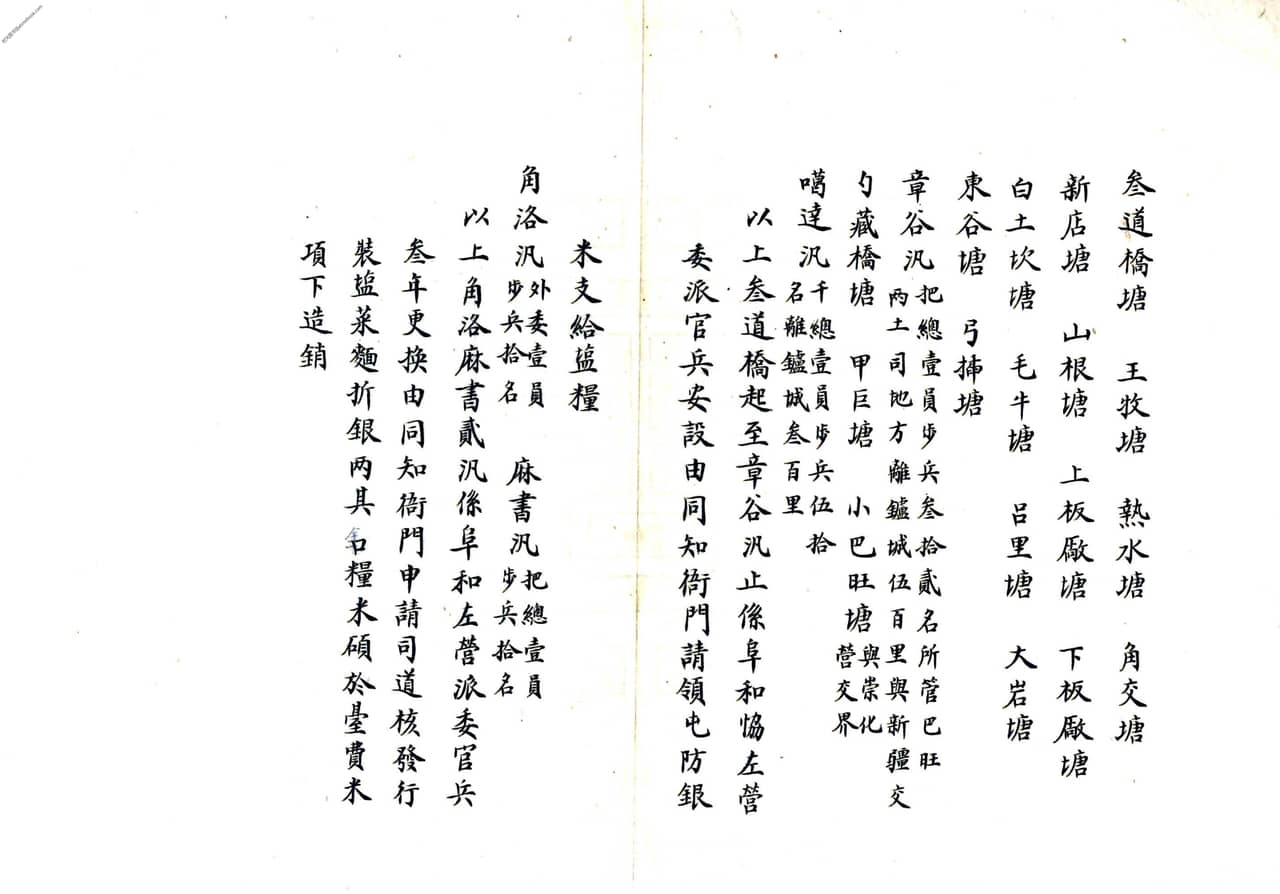 叁道橋塘　王牧塘　熱水塘　角交塘
新店塘　山根塘　上板厰塘　下板厰塘
白土坎塘　毛牛塘　吕里塘　大岩塘
東谷塘　弓㨪塘
章谷汛把總壹員步兵叁拾貳名所管巴旺
兩土司地方離鑪城伍百里與新疆交
勺藏橋塘　甲巨塘　小巴旺塘與崇化
營交界
噶達汛千總壹員步兵伍拾
名離鑪城叁百里
以上叁道橋起至章谷汛止係阜和恊左營
委派官兵安設由同知衙門請領屯防銀
米支給塩糧
角洛汛外委壹員
步兵拾名
麻書汛把總壹員
步兵拾名
以上角洛麻書貳汛係阜和左營派委官兵
叁年更換由同知衙門申請司道核發行
裝塩菜麵折銀两其口糧米碩於臺費米
項下造銷